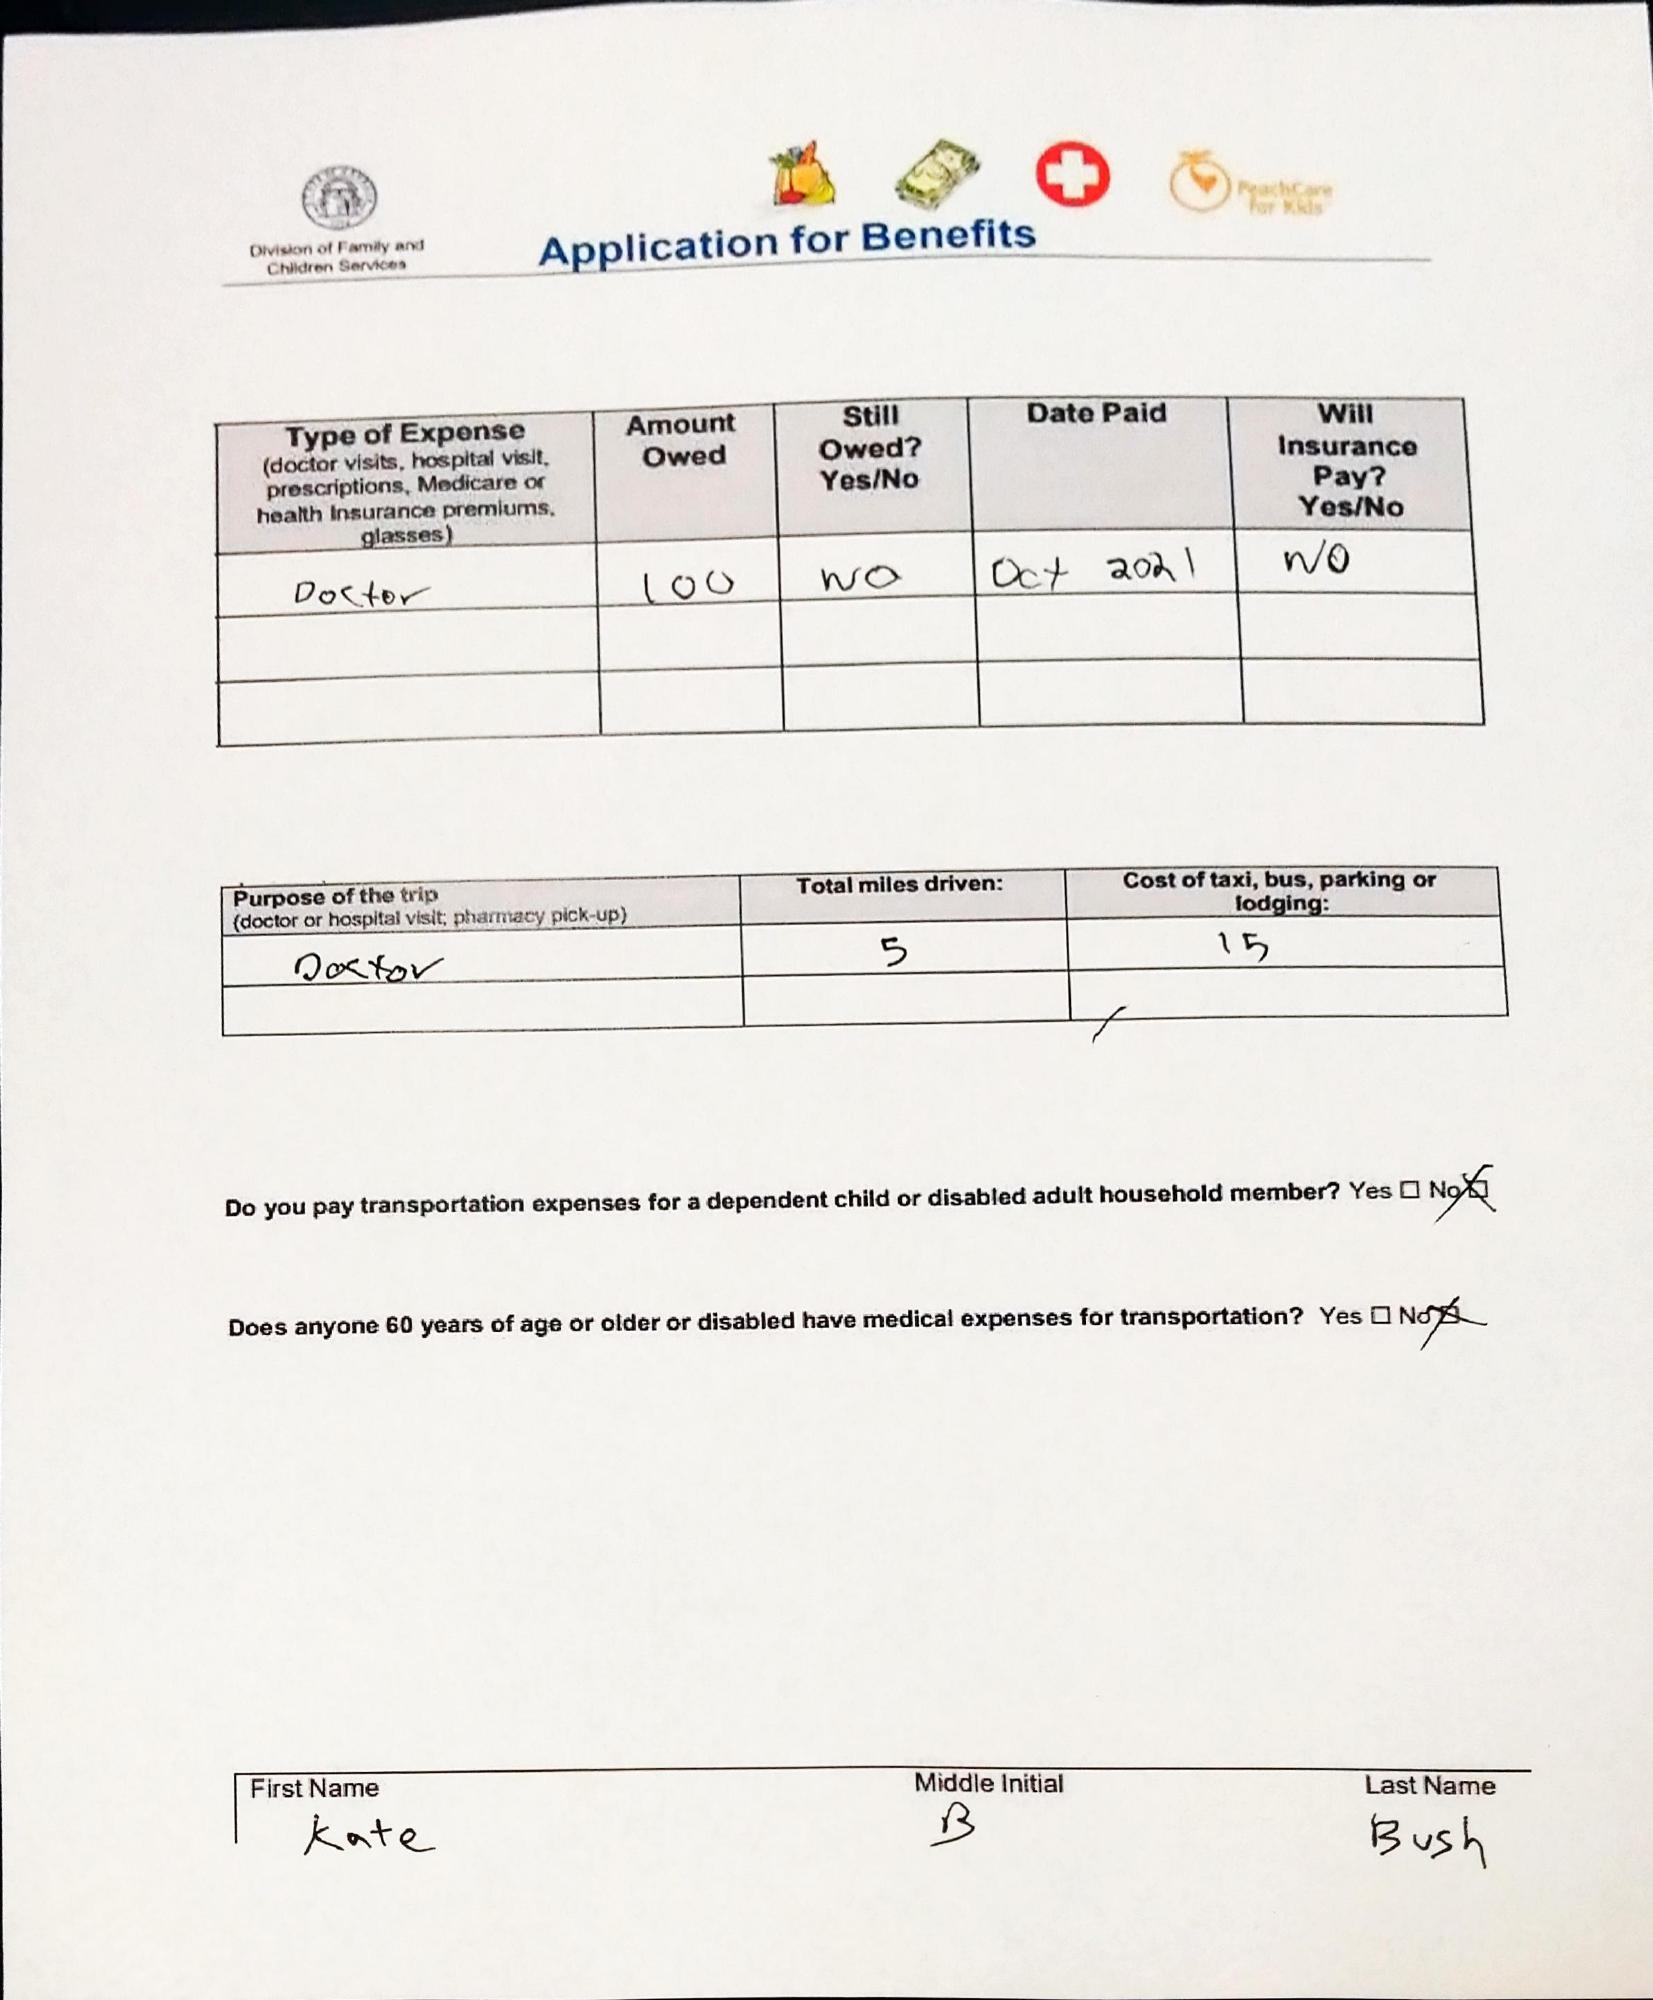 Division of Family and
Children Services
PeachCare
for Kids
Application for Benefits
Type of Expense
(doctor visits, hospital visit,
prescriptions, Medicare or
health Insurance premiums,
glasses)
Amount
Owed
Still
Owed?
Yes/No
Date Paid
Will
Insurance
Pay?
Yes/No
Doctor 100 NO Oct 2021 NO
Purpose of the trip
(doctor or hospital visit; pharmacy pick-up)
Total miles driven:
Cost of taxi, bus, parking or
lodging:
Doctor 5 15
Do you pay transportation expenses for a dependent child or disabled adult household member? Yes ☐ No ☒
Does anyone 60 years of age or older or disabled have medical expenses for transportation? Yes ☐ No ☒
First Name Middle Initial Last Name
Kate B Bush